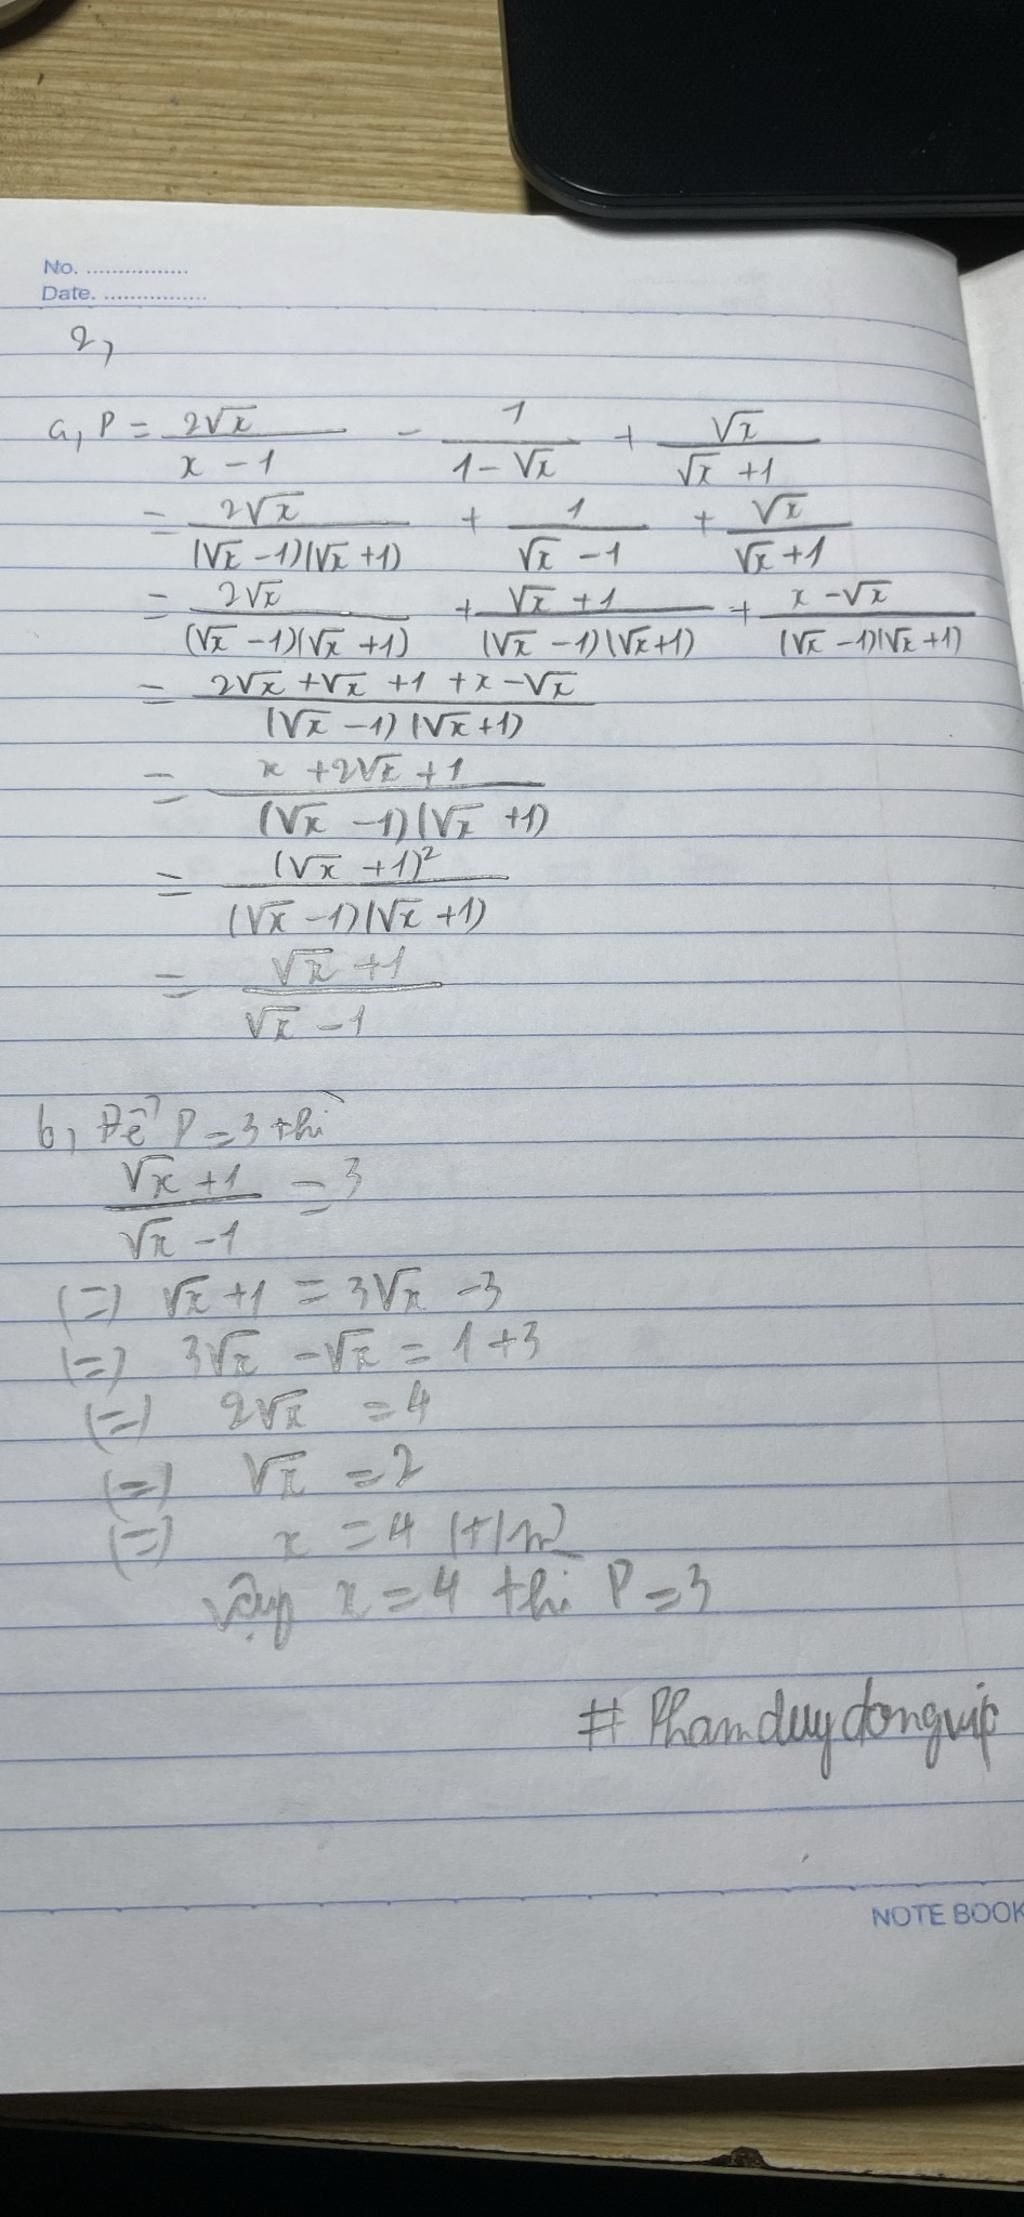 No. ................
Date. ................
2,
a, P = 2√x / (x - 1) - 1 / (1 - √x) + √x / (√x + 1)
= 2√x / ((√x - 1)(√x + 1)) + 1 / (√x - 1) + √x / (√x + 1)
= 2√x / ((√x - 1)(√x + 1)) + (√x + 1) / ((√x - 1)(√x + 1)) + (x - √x) / ((√x - 1)(√x + 1))
= (2√x + √x + 1 + x - √x) / ((√x - 1)(√x + 1))
= (x + 2√x + 1) / ((√x - 1)(√x + 1))
= (√x + 1)² / ((√x - 1)(√x + 1))
= (√x + 1) / (√x - 1)
b, Để P = 3 thì
(√x + 1) / (√x - 1) = 3
(=) √x + 1 = 3√x - 3
(=) 3√x - √x = 1 + 3
(=) 2√x = 4
(=) √x = 2
(=) x = 4 (t/m)
vậy x = 4 thì P = 3
# Phamduydongvip
NOTE BOOK